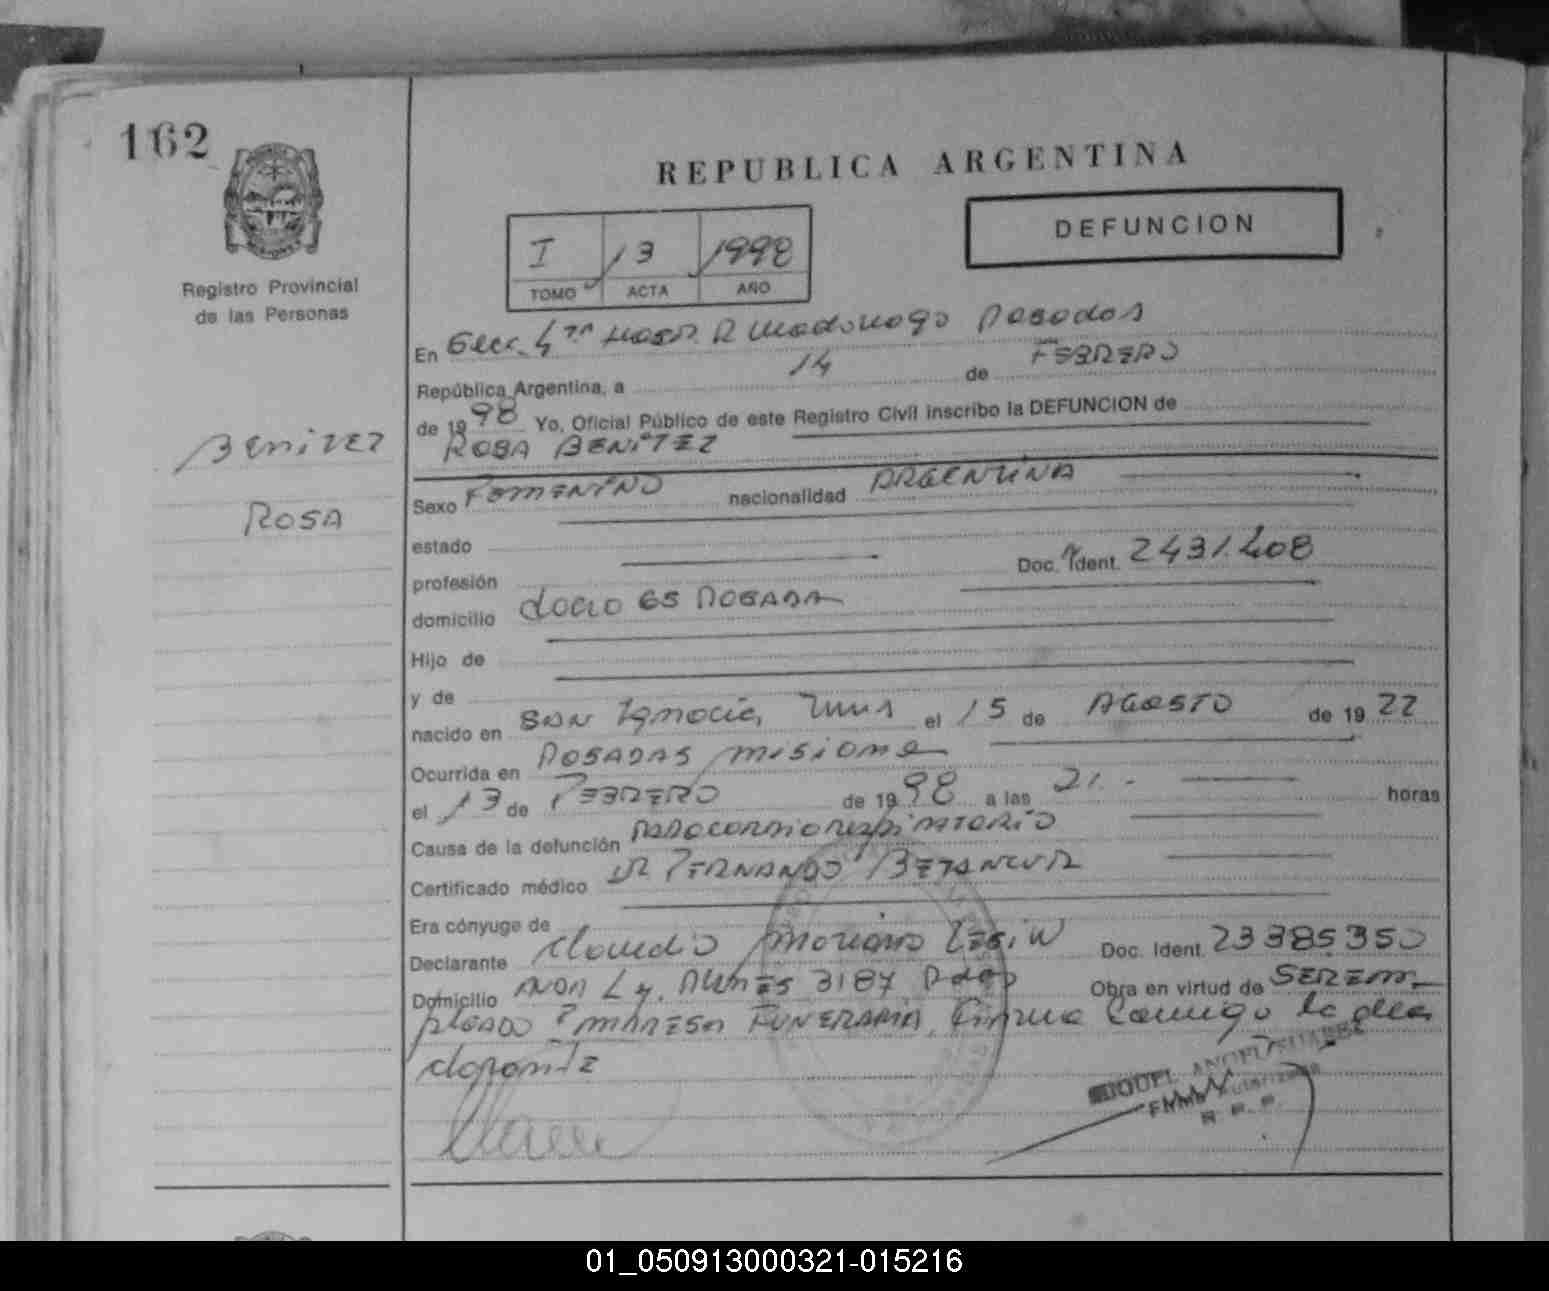 162
REPUBLICA ARGENTINA
DEFUNCION
I 13 1998
TOMO ACTA AÑO
Registro Provincial
de las Personas
En Secc. 4ta Hosp. R Madariaga Posadas
República Argentina, a 14 de FEBRERO
de 1998 Yo, Oficial Público de este Registro Civil inscribo la DEFUNCION de
ROSA BENITEZ
BENITEZ
ROSA
Sexo FEMENINO nacionalidad ARGENTINA
estado
profesión Doc. Ident. 2431.408
domicilio 65 POSADA
Hijo de
y de
nacido en SAN Ignacio, Mnes el 15 de AGOSTO de 1922
Ocurrida en POSADAS MISIONES
el 13 de FEBRERO de 1998 a las 21.- horas
Causa de la defunción PAROCARDIORESPIRATORIO
Certificado médico DR FERNANDO BETANCUR
Era cónyuge de
Declarante Claudio Mariano Doc. Ident. 23385350
Domicilio AVDA L y. 3187 Pdas Obra en virtud de SER EM-
PLEADO EMPRESA FUNERARIA, Firma Conmigo la
MIGUEL ANGEL
Firma Autorizada
R. P. P.
01_050913000321-015216